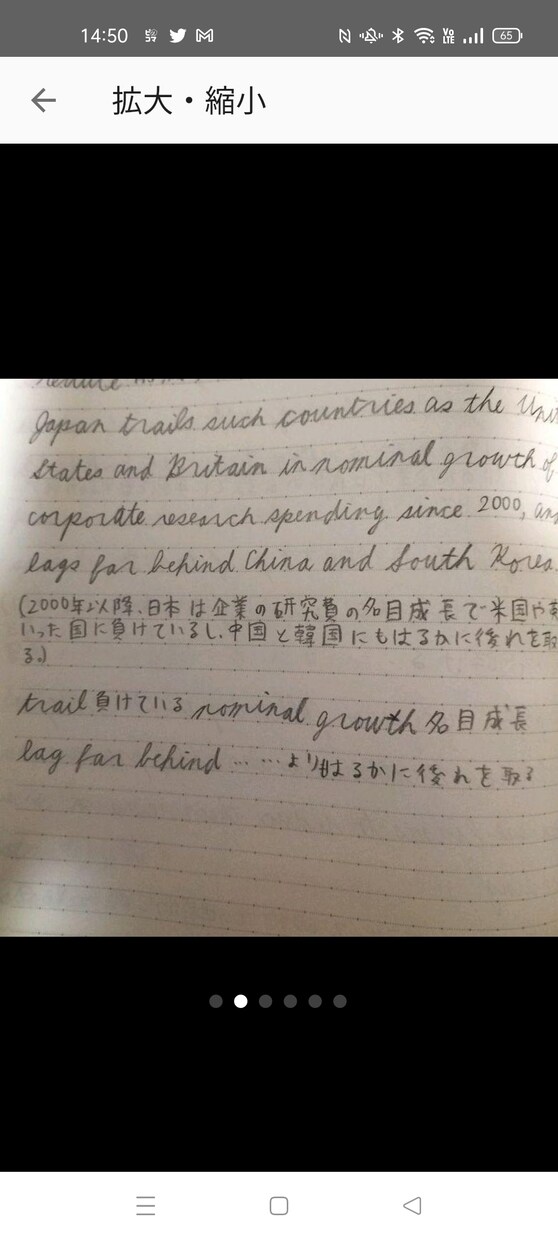 14:50
65
拡大・縮小
Japan trails such countries as the
States and Britain in nominal growth of
corporate research spending since 2000,
lags far behind China and South Korea.
(2000年以降、日本は企業の研究費の名目成長で米国や
いった国に負けているし、中国と韓国にもはるかに後れを取
る。)
trail 負けている nominal growth 名目成長
lag far behind …… よりもはるかに後れを取る